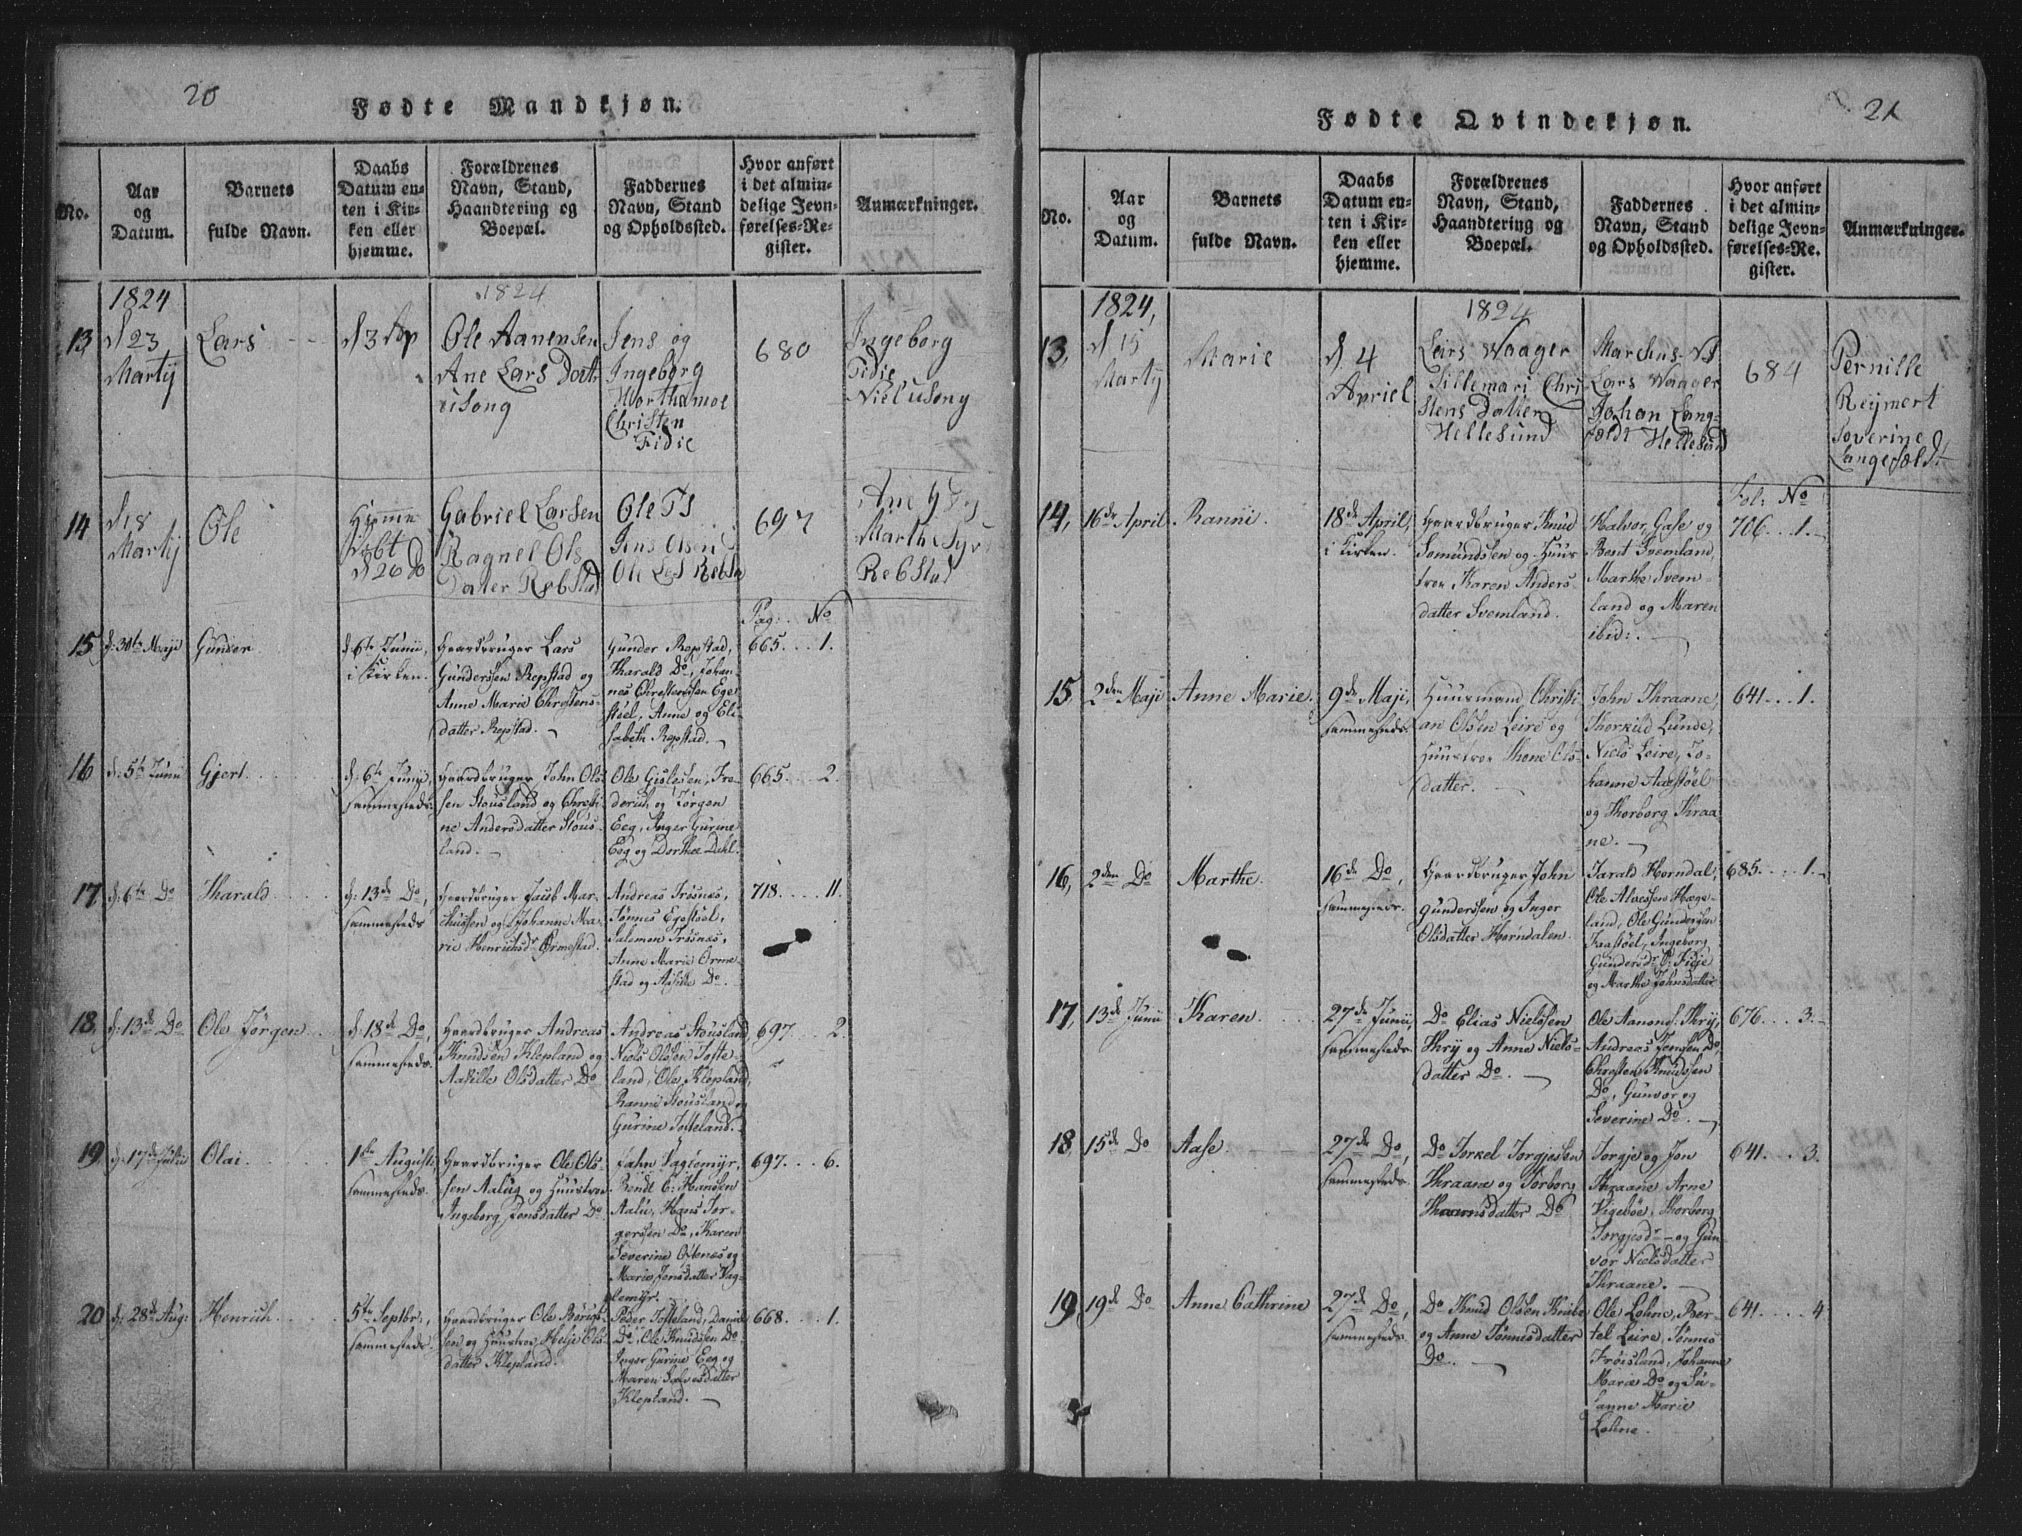 20
Fødte Mandkjøn.
No.
Aar
og
Datum.
Barnets
fulde Navn.
Daabs
Datum en-
ten i Kir-
ken eller
hjemme.
Forældrenes
Navn, Stand,
Haandtering og
Boepæl.
Faddernes
Navn, Stand
og Opholdssted.
Hvor anført
i det almin-
delige Jevn-
førelses-Re-
gister.
Anmærkninger.
1824
1824
13
d 23
Martij
Lars
d 3 Ap
Ole Aanensen
Ane Lars Dott
Jens og
Ingeborg
Christen
Fidie
680
Ingeborg
Fidie
14
d 8
Martij
Ole
Hjemme
Døbt
d 26 do
Gabriel Larsen
Ragnel Ols
Datter Rebstad
Ole
Jens Olsen
Ole
697
Marthe
Rebstad
Pag: No
15
d: 30te Maji
Gunder
d: 6te Junii,
i Kirken.
Gaardbruger Lars
Gunderssen Repstad og
Anne Marie Christens-
datter Repstad.
Gunder Repstad,
Tharald Do, Johan-
nes Christenssen Ege-
støel, Anne og Eli-
sabeth Repstad.
665. . . 1.
16
d: 5te Junii
Gjert
d: 6te Junii,
sammesteds.
Gaardbruger John Ols-
sen Stousland og Christi-
ne Andersdatter Stous-
land.
Ole Gislesen, Fre-
derich og Jørgen
Eeg, Inger Gurine
Eeg og Dorthea Dahl.
665. . . 2.
17
d: 6te Do
Tharald
d: 13de Do,
sammesteds
Gaardbruger Jacob Mar-
chussen og Johanne Ma-
rie Henrichsdr Ormestad.
Andreas Trøsnæs,
Tønnes Egestøel,
Salemon Trøsnæs,
Anne Marie Orme-
stad og Asille Do.
718. . . 11.
18
d: 13de Do
Ole Jørgen
d: 18de Do,
sammesteds.
Gaardbruger Andreas
Knudsen Klepland og
Aasille Olsdatter Do
Andreas Stousland
Niels Olssen Tofte-
land, Ole Klepland,
Ranni Stousland og
Gurine Tofteland.
697. . . 2.
19
d: 17de Julii
Olai
1ste Augusti,
sammesteds.
Gaardbruger Ole Ols-
sen Aalug og Huustroe
Ingeborg Jensdatter Do
Hans Tor-
gerssen Do, Karen
Severine Østenes og
Marie Jensdatter Vag-
lemyr.
697. . . 6.
20
d: 28de Aug:
Henrich
5te Septbr:,
sammesteds.
Gaardbruger Ole
sen og Huustroe Helje Ols-
datter Klepland.
Peder Tofteland, Daniel
Do, Ole Knudssen Do
Inger Gurine Eeg og
Maren Salvesdatter
Klepland.
668. . . 1.
21
Fødte Qvindekjøn.
No.
Aar
og
Datum.
Barnets
fulde Navn.
Daabs
Datum en-
ten i Kir-
ken eller
hjemme.
Forældrenes
Navn, Stand,
Haandtering og
Boepæl.
Faddernes
Navn, Stand
og Opholdssted.
Hvor anført
i det almin-
delige Jevn-
førelses-Re-
gister.
Anmærkninger.
1824,
1824
13,
d 15
Martij
Marie
d. 4
Apriel
Lars Waager
Sillemari Chri
stens Datter
Hellesund
Marchus
Lars Waager
Johan Lang-
fældt Hellesund
684
Pernille
Reijmert
Soverine
Langefældt
Fol: No
14,
16de April
Ranni.
18de April,
i Kirken.
Gaardbruger Knud
Somundssen og Huus
troe Karen Anders-
datter Svemland.
Halvor Gase og
Bent Svemland,
Marthe Svem-
land og Maren
ibid:.
706. . . 1.
15,
2den Maji
Anne Marie.
9de Maji,
sammesteds.
Huusmand Christi-
an Olsen Leire og
Huustroe Thone Ols-
datter.
John Thraane,
Thorkild Lunde,
Niels Leire, Jo-
hanne Aaestøel
og Thorborg Thraa-
ne.
641. . . 1.
16,
2den Do
Marthe.
16de Do,
sammesteds.
Gaardbruger John
Gunderssen og Inger
Olsdatter Horndalen.
Tarald Horndal,
Ole Alvessen Hæge-
land, Ole Gunderssen
Kaastøel, Ingeborg
Gundersdr O: Fidje
og Marthe Johnsdatter
685. . . 1.
17,
13de Junii
Karen.
27de Junii,
sammesteds.
Do Elias Nielssen
Thrij og Anne Niels-
datter Do.
Ole Aanonds: Thrij,
Andreas Jenssen Do,
Christen Knudssen
Do, Gunvor og
Severine Do.
676. . . 3.
18,
15de Do
Aase
27de Do,
sammesteds.
Do Torkel Torgjessen
Thraane og Torborg
datter Do
Torgje og Jon
Thraane Arne
Vigebøe, Thorborg
Torgjesdr og Gun-
vor Nielsdatter
Thraane.
641. . . 3.
19,
19de Do
Anne Cathrine
27de Do,
sammesteds.
Do Knud Olssen Knibe
og Anne Tønnesdatter
Do.
Ole Lohne, Ber-
tel Leire, Tønnes
Frøisland, Johanne
Marie Do og Su-
sanne Marie
Lohne.
641. . . 4